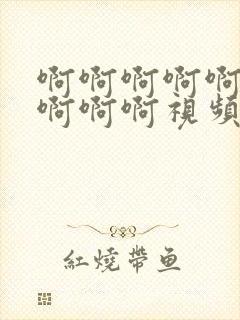 啊啊啊啊啊
啊啊啊視頻
紅燒帶鱼